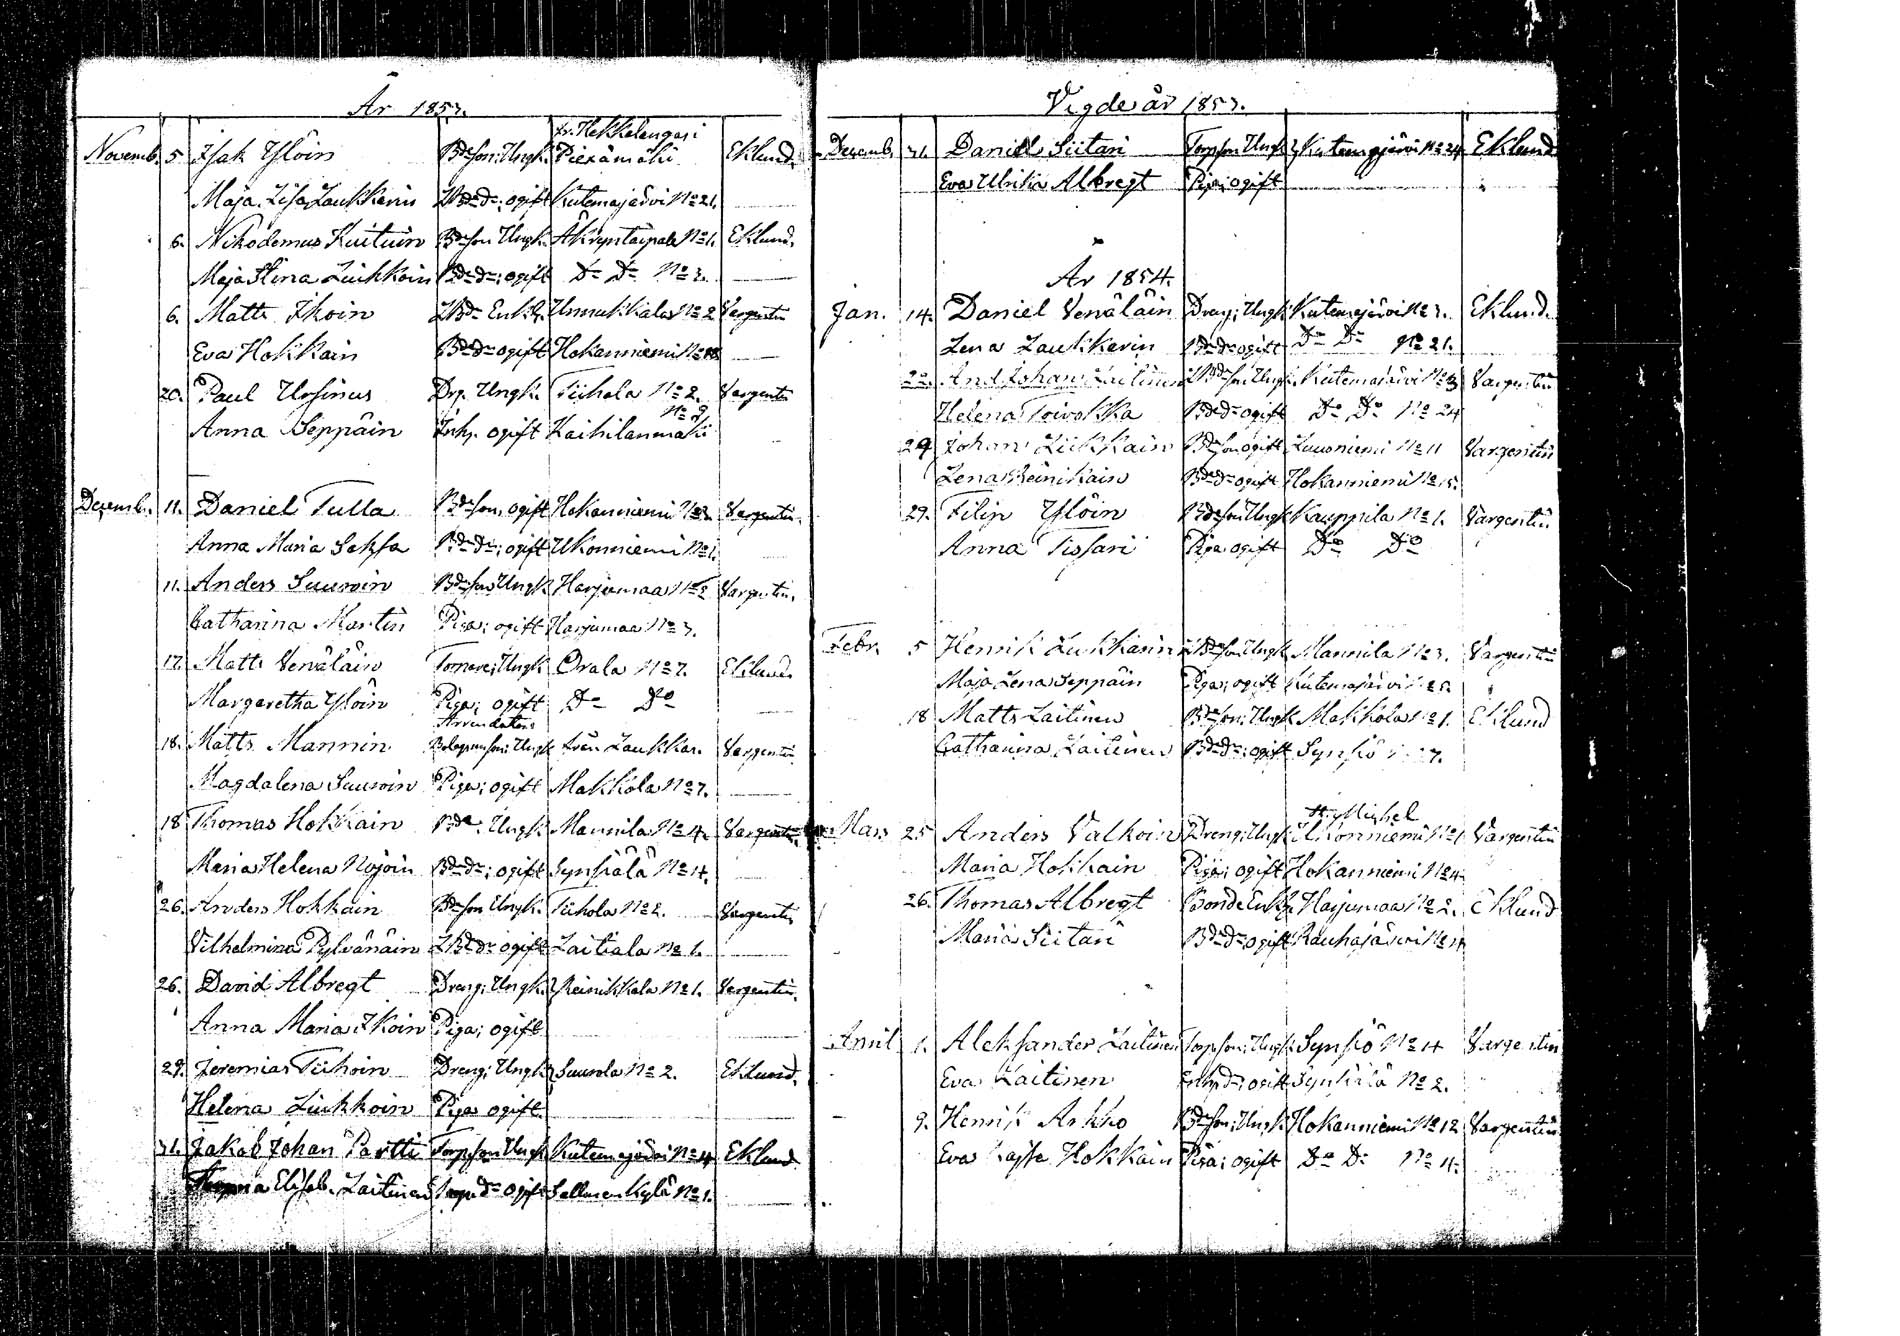 År 1853.
Novemb. 5. Isak Ylöin Bdeson; Ungk. fr. Hekkalengasi Piexämäki Eklund.
Maja Lisa Laukkarin LBde dr; ogift Kutemajärvi No 21.
6. Nikodemus Kuituin Bdeson Ungk. Åkryntaipale No 1. Eklund.
Maja Stina Liukkoin Bde dr; ogift Do Do No 3.
6. Matts Ikoin LBde Enkl. Unnukkala No 2 Vargentin
Eva Hokkain Bde dr ogift Hokanniemi No
20. Paul Ursinus Drg. Ungk. Tiihola No 2. Vargentin
Anna Seppäin Inh. ogift Kaihilanmäki No 9
Decemb. 11. Daniel Tulla Bdeson; ogift Hokanniemi No Vargentin.
Anna Maria Saksa Bde dr; ogift Ukonniemi No 1.
11. Anders Suuroin Bdeson Ungk. Harjumaa No 2 Vargentin.
Catharina Martin Piga; ogift Harjumaa No 3.
17. Matts Venäläin Tornare; Ungk. Orala No 7. Eklund.
Margaretha Ylöin Piga; ogift Do Do
18. Matts Mannin Arrendators Ungk från Laukka. Vargentin
Magdalena Suuroin Piga; ogift Makkola No 7.
18 Thomas Hokkain Bde. Ungk. Mannila No 4. Vargentin
Maria Helena Nojoin Bde dr; ogift Synsiälä No 4.
26. Anders Hokkain Bdeson Ungk. Tiihola No 2. Vargentin
Vilhelmina Pylvänäin LBde dr ogift Laitiala No 1.
26. David Albregt Dreng; Ungk. Reinikkala No 1. Vargentin.
Anna Maria Ikoin Piga; ogift
29. Jeremias Tiihoin Dreng; Ungk Suurola No 2. Eklund.
Helena Liukkoin Piga ogift
31. Jakob Johan Partti Torpson Ungk Kutemajärvi No 4 Eklund
Elisab. Laitinen Torp dr ogift Sallmenkylä No 1.
Vigde år 1853.
Decemb. 31. Daniel Siitari Torpson Ungk Kutemajärvi No 24 Eklund
Eva Ulrika Albregt Piga; ogift
År 1854.
Jan. 14. Daniel Venäläin Dreng; Ungk Kutemajärvi No 3. Eklund.
Lena Laukkarin Bde dr ogift Do Do No 21.
22. And. Johan Laitinen LBdeson Ungk. Kutemajärvi No 3 Vargentin
Helena Toivakka Bde dr ogift Do Do No 24
29 Johan Liukkain Bdeson ogift Luusniemi No 11 Vargentin
Lena Reinikain Bde dr ogift Hokanniemi No 15.
29. Filip Ylöin Bdeson Ungk Kauppila No 1. Vargentin
Anna Tissari Piga ogift Do Do
Febr. 5 Henrik Lukkarin LBdeson Ungk Mannila No 3. Vargentin
Maja Lena Seppäin Piga; ogift Kutemajärvi
18 Matts Laitinen Bdeson; Ungk Makkola No 1. Eklund
Catharina Laitinen Bde dr; ogift Synsiö 7.
Mars 25 Anders Valkoin Dreng; Ungk St. Michel Ukonniemi No 1 Vargentin
Maria Hokkain Piga; ogift Hokanniemi No 4
26. Thomas Albregt Bonde Enkl. Harjumaa No 2. Eklund
Maria Siitari Bde dr ogift Rauhajärvi No 4
April 1. Aleksander Laitinen Torpson; Ungk Synsiö No 4 Vargentin
Eva Laitinen Inh dr; ogift Synsiälä No 2.
9. Henrik Arkko Bdeson; Ungk. Hokanniemi No 12 Vargentin
Eva Kajsa Hokkain Piga; ogift Do Do No 4.